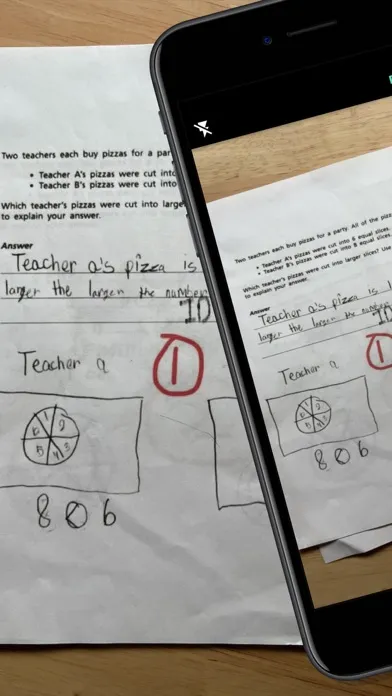 Two teachers each buy pizzas for a par
• Teacher A's pizzas were cut into
• Teacher B's pizzas were cut into
Which teacher's pizzas were cut into large
to explain your answer.
Answer
Teacher a's pizza is
larger the larger the number
ID
Teacher a
1
1
2
3
4
5
6
8 0 6
Two teachers each buy pizzas for a party. All of the pizz
• Teacher A's pizzas were cut into 6 equal slices.
• Teacher B's pizzas were cut into 8 equal slices.
Which teacher's pizzas were cut into larger slices? Use
to explain your answer.
Answer
Teacher a's pizza is l
larger the larger the number
ID
Teacher a
1
1
2
3
4
5
6
8 0 6